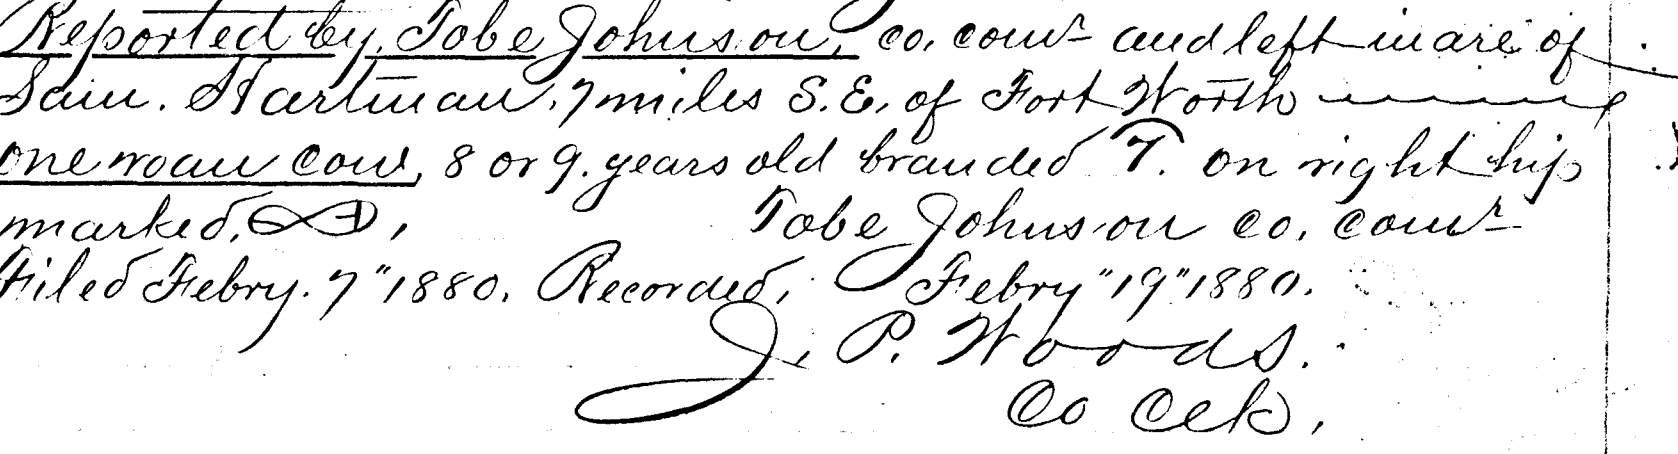 Reported by, Tobe Johnson, co. comr and left in care of
Sam. Hartman, 7 miles S. E. of Fort Worth
one roan cow, 8 or 9. years old branded 7. on right hip
marked, Tobe Johnson co. comr
Filed Febry. 7" 1880. Recorded, Febry "19" 1880.
J. P. Woods.
Co Clk,